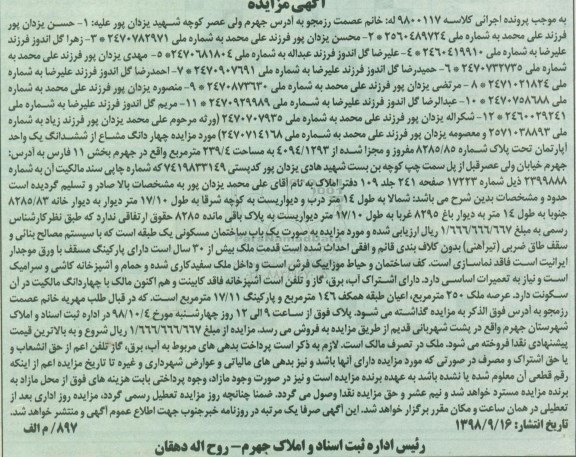 آگهی مزایده
به موجب پرونده اجرائی کلاسه ۹۸۰۰۱۱۷ له: خانم عصمت رزمجو به آدرس جهرم ولی عصر کوچه شهید یزدان پور علیه: ۱- حسن یزدان پور
فرزند علی محمد به شماره ملی ۲۵۶۰۴۸۹۷۲۴ * ۲- محسن یزدان پور فرزند علی محمد به شماره ملی ۲۴۷۰۷۸۲۹۷۱ * ۳- زهرا گل اندوز فرزند
علیرضا به شماره ملی ۲۴۶۰۴۱۹۹۱۰ * ۴- علیرضا گل اندوز فرزند عبداله به شماره ملی ۲۴۷۰۶۸۱۸۰۴ * ۵- مهدی یزدان پور فرزند علی محمد به
شماره ملی ۲۴۷۰۷۳۲۷۳۵ * ۶- حمیدرضا گل اندوز فرزند علیرضا به شماره ملی ۲۴۷۰۹۰۷۶۹۱ * ۷- احمدرضا گل اندوز فرزند علیرضا به شماره
ملی ۲۴۷۱۰۲۱۸۲۴ * ۸- مرتضی یزدان پور فرزند علی محمد به شماره ملی ۲۴۷۰۸۷۳۶۳۰ * ۹- منصوره یزدان پور فرزند علی محمد به شماره
ملی ۲۴۷۰۷۵۸۶۸۸ * ۱۰- عبدالرضا گل اندوز فرزند علیرضا به شماره ملی ۲۴۷۰۹۲۹۹۸۹ * ۱۱- مریم گل اندوز فرزند علیرضا به شماره ملی
۲۴۶۰۰۲۹۲۴۱ * ۱۲- شکراله یزدان پور فرزند علی محمد به شماره ملی ۲۴۷۰۷۰۷۹۳۵ (ورثه مرحوم علی محمد یزدان پور فرزند زیاد به شماره
ملی ۲۵۷۱۰۳۸۸۹۳ و معصومه یزدان پور فرزند علی محمد به شماره ملی ۲۴۷۰۷۱۴۱۶۸) مورد مزایده چهار دانگ مشاع از ششدانگ یک واحد
آپارتمان تحت پلاک شماره ۸۲۸۵/۸۵ مفروز و مجزا شده از ۴۰۹۴/۱۲۹۳ به مساحت ۲۳۹/۴ مترمربع واقع در جهرم بخش ۱۱ فارس به آدرس:
جهرم خیابان ولی عصرقبل از پل سمت چپ کوچه بن بست شهید هادی یزدان پور کدپستی ۷۴۱۹۸۳۳۱۴۹ که شماره چاپی سند مالکیت آن به شماره
۲۳۹۹۸۸۸ ذیل شماره ۱۷۲۲۳ صفحه ۲۴۱ جلد ۱۰۹ دفتر املاک به نام آقای علی محمد یزدان پور به مشخصات بالا صادر و تسلیم گردیده است
حدود و مشخصات بدین شرح می باشد: شمالا به طول ۱۴ متر درب و دیواریست به کوچه شرقا به طول ۱۷/۱۰ متر دیوار به دیوار خانه ۸۲۸۵/۸۳
جنوبا به طول ۱۴ متر به دیوار باغ ۸۲۹۵ غربا به طول ۱۷/۱۰ متر دیواریست به پلاک باقی مانده ۸۲۸۵ حقوق ارتفاقی ندارد که طبق نظرکارشناس
رسمی به مبلغ ۱/۶۶۶/۶۶۶/۶۶۷ ریال ارزیابی شده و مورد مزایده به صورت یک باب ساختمان مسکونی یک طبقه است که با سیستم مصالح بنائی و
سقف طاق ضربی (تیرآهنی) بدون کلاف بندی قائم و افقی احداث شده است قدمت ملک بیش از ۳۰ سال است دارای پارکینگ مسقف با ورق موجدار
ایرانیت است فاقد نماسازی است. کف ساختمان و حیاط موزاییک فرش است و داخل ملک سفیدکاری شده و حمام و آشپزخانه کاشی و سرامیک
است و نیاز به تعمیرات اساسی دارد. دارای اشتراک آب، برق، گاز و تلفن است آشپزخانه فاقد کابینت و هم اکنون مالک با چهاردانگ مالکیت در آن
سکونت دارد. عرصه ملک ۲۵۰ مترمربع، اعیان طبقه همکف ۱۴۶ مترمربع و پارکینگ ۱۷/۱۱ مترمربع است، که در قبال طلب مهریه خانم عصمت
رزمجو به آدرس فوق الذکر به مزایده گذاشته می شود. پلاک فوق از ساعت ۹ الی ۱۲ روز چهارشنبه مورخ ۹۸/۱۰/۴ در اداره ثبت اسناد و املاک
شهرستان جهرم واقع در پشت شهربانی قدیم از طریق مزایده به فروش می رسد. مزایده از مبلغ ۱/۶۶۶/۶۶۶/۶۶۷ ریال شروع و به بالاترین قیمت
پیشنهادی نقدا فروخته می شود. ملک در تصرف مالک است. لازم به ذکر است پرداخت بدهی های مربوط به آب، برق، گاز تلفن اعم از حق انشعاب و
یا حق اشتراک و مصرف در صورتی که مورد مزایده دارای آنها باشد و نیز بدهی های مالیاتی و عوارض شهرداری و غیره تا تاریخ مزایده اعم از اینکه
رقم قطعی آن معلوم شده یا نشده باشد به عهده برنده مزایده است و نیز در صورت وجود مازاد، وجوه پرداختی بابت هزینه های فوق از محل مازاد به
برنده مزایده مسترد خواهد شد و نیم عشر و حق مزایده نقدا وصول می گردد، ضمنا چنانچه روز مزایده تعطیل رسمی گردد، مزایده روز اداری بعد از
تعطیلی در همان ساعت و مکان مقرر برگزار خواهد شد. این آگهی صرفا یک مرتبه در روزنامه خبرجنوب جهت اطلاع عموم آگهی و منتشر خواهد شد.
تاریخ انتشار: ۱۳۹۸/۹/۱۶
۸۹۷/ م الف
رئیس اداره ثبت اسناد و املاک جهرم- روح اله دهقان